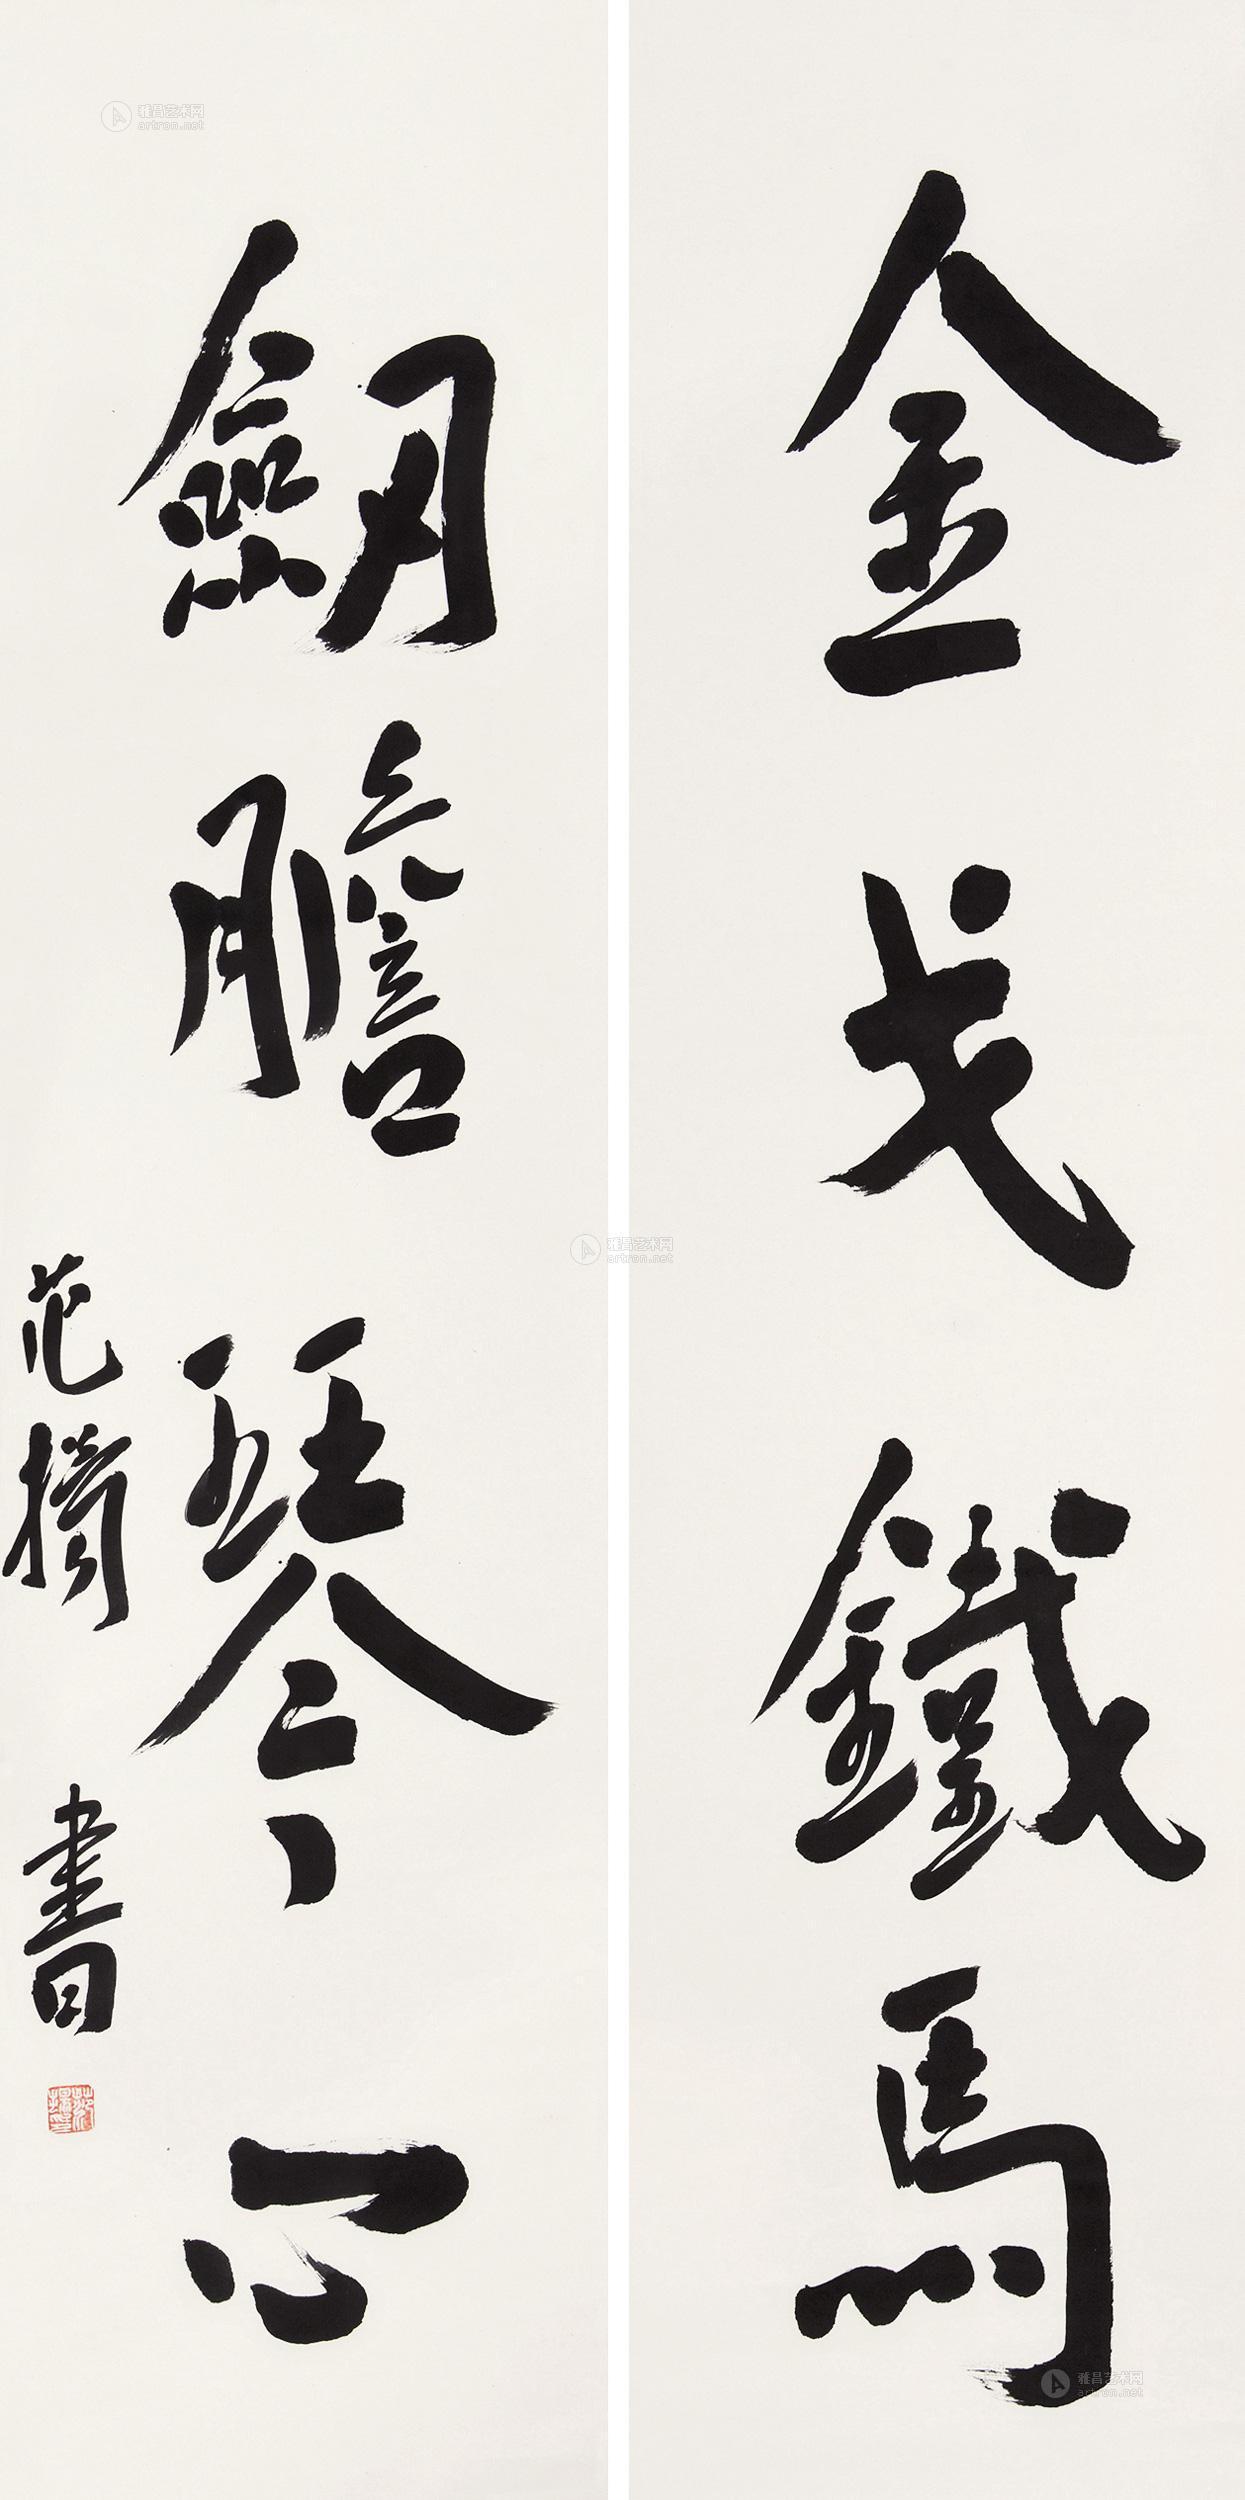 金戈鐵馬
劒膽琴心
范擕書
雅昌艺术网
artron.net
雅昌艺术网
artron.net
雅昌艺术网
artron.net